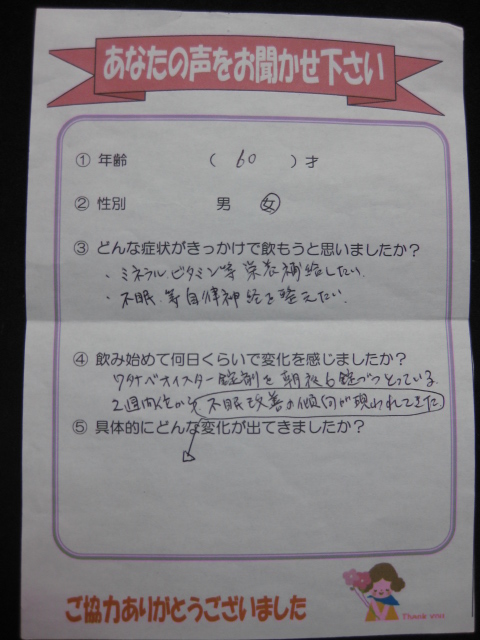 あなたの声をお聞かせ下さい
① 年齢 ( 60 )才
② 性別 男 女
③ どんな症状がきっかけで飲もうと思いましたか?
・ミネラル ビタミン等 栄養補給したい.
・不眠.等自律神経を整えたい.
④ 飲み始めて何日くらいで変化を感じましたか?
ワタナベオイスター錠剤を朝夜6錠づつとっている.
2週間位から 不眠改善の傾向が現われてきた
⑤ 具体的にどんな変化が出てきましたか?
ご協力ありがとうございました
Thank you!